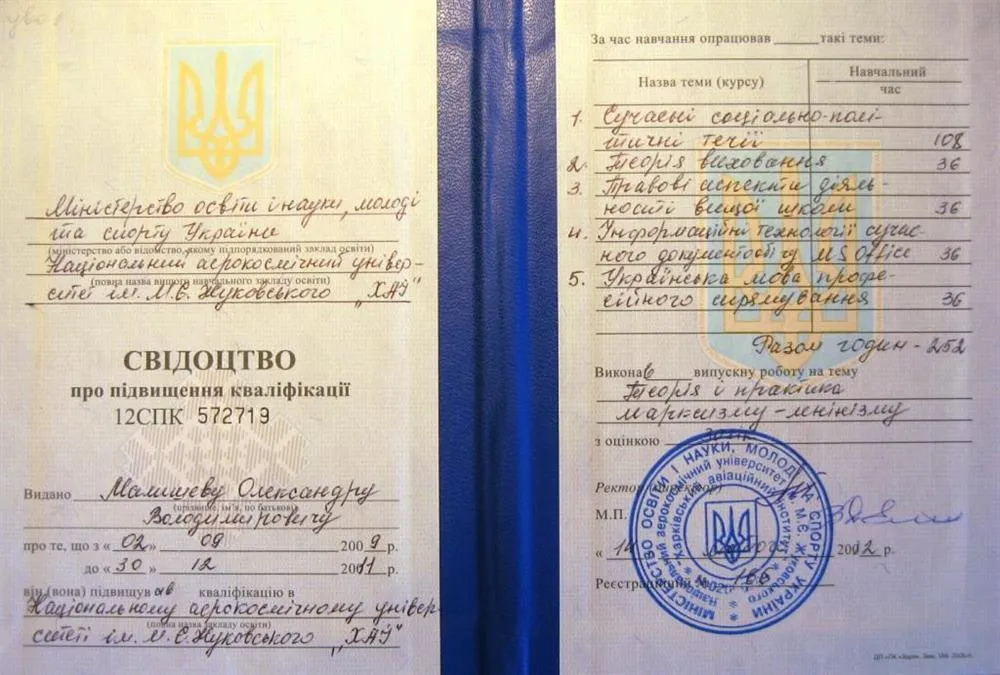 Міністерство освіти і науки, молоді
та спорту України
(міністерство або відомство, якому підпорядкований заклад освіти)
Національний аерокосмічний універ-
ситеті ім. М.Є. Жуковського „ХАІ"
(повна назва вищого навчального закладу освіти)
СВІДОЦТВО
про підвищення кваліфікації
12СПК 572719
Видано Малишеву Олександру
(прізвище, ім'я, по батькові)
Володимировичу
про те, що з «02» 09 2009 р.
до «30» 12 2011 р.
він (вона) підвищив кваліфікацію в
Національному аерокосмічному універ-
ситеті ім. М. Є. Жуковського „ХАІ"
(повна назва закладу освіти)
За час навчання опрацював такі теми:
Назва теми (курсу)
Навчальний
час
1. Сучасні соціально-полі-
тичні течії 108
2. Теорія виховання 36
3. Правові аспекти діяль-
ності вищої школи 36
4. Інформаційні технології сучас-
ного документообігу MS Office 36
5. Українська мова профе-
сійного спрямування 36
Разом годин - 252
Виконав випускну роботу на тему
Теорія і практика
марксизму-ленінізму
з оцінкою
Ректор (директор)
М.П.
«14» 2012 р.
Реєстраційний №
МІНІСТЕРСТВО ОСВІТИ І НАУКИ, МОЛОДІ ТА СПОРТУ УКРАЇНИ
Національний аерокосмічний університет ім. М.Є. Жуковського
Харківський авіаційний інститут